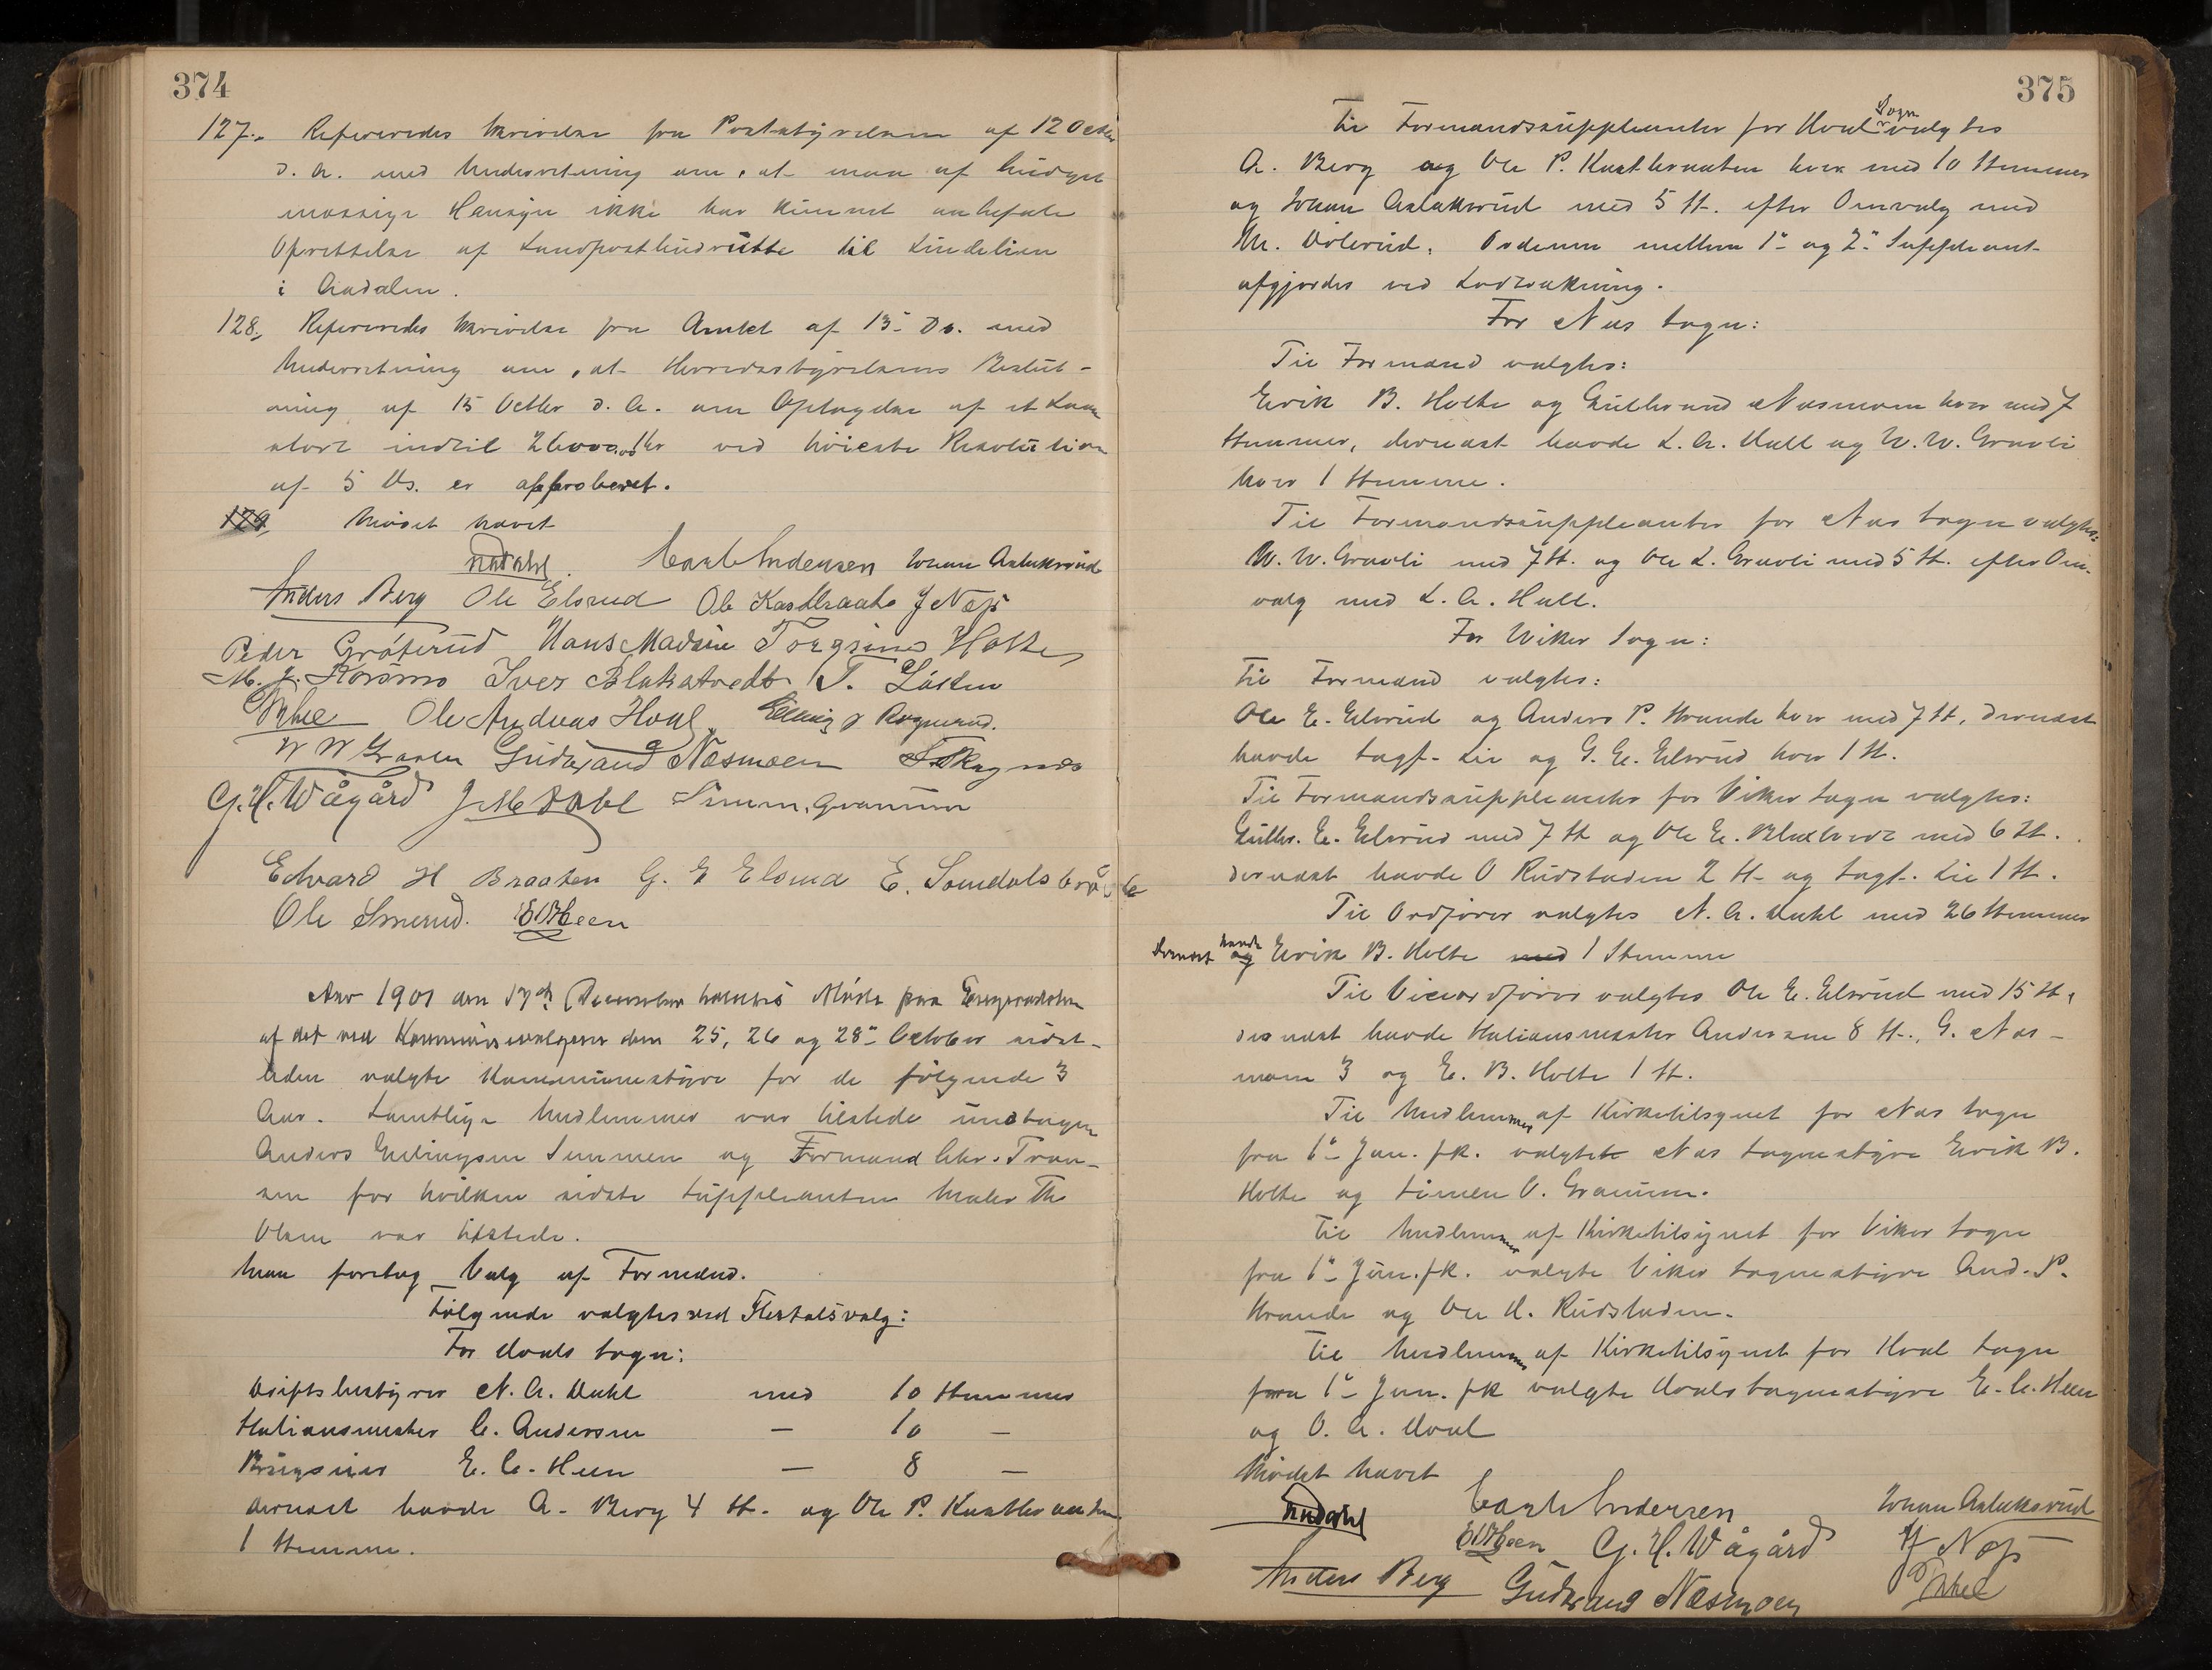 374
127. Refereredes Skrivelse fra Poststyrelsen af 12 Octbr
d. A. med Underretning om, at man af budget-
mæssige Hensyn ikke har kunnet anbefale
Oprettelse af Landpostbudrutte til Lindelien
i Aadalen.
128. Refereredes Skrivelse fra Amtet af 13 Ds. med
Underretning om, at Herredsstyrelsens Beslut-
ning af 15 Octbr d. A. om Optagelse af et Laan
stort indtil 26000,00 Kr ved høieste Resolution
af 5 Ds. er approberet.
129. Mødet hævet
NADahl. Carl Andersen Johan Aslaksrud
Anders Berg Ole Elsrud Ole Kastbraate J Næss
Peder Gråterud Hans Madsen Torgrim Holte
Iver Blakstvedt T.
Ole Andreas Hoal
W W Gravli Gudbrand Næsmoen
G. H. Wågård J M Dahl Simen Gramum
Edvard H Braaten G. E Elsrud E. Somdalsbråte
Ole Smerud. ECHeen
Aar 1901 den 17de December holdtes Møde paa
af det ved Kommunevalgene den 25, 26 og 28 October sidst-
leden valgte Kommunestyre for de følgende 3
Aar. Samtlige Medlemmer var tilstede undtagen
Anders Ellingsen Semmen og Formand Chr. Tran-
sen for hvilken sidste Suppleanten Maler Th
Olsen var tilstede.
Man foretog Valg af Formænd.
Følgende valgtes ved Flertalsvalg:
For Hoals Sogn:
Driftsbestyrer N. A. Dahl med 10 Stemmer
Stationsmester C. Andersen — 10 —
Brugseier E. C. Heen — 8 —
dernæst havde A. Berg 4 St. og Ole P. Kastbraaten
1 Stemme.
375
Til Formandssuppleanter for Hoal Sogn valgtes
A. Berg og Ole P. Kastbraaten hver med 10 Stemmer
og Johan Aslaksrud med 5 St. efter Omvalg med
M. Volerud. Ordenen mellem 1ste og 2den Suppleant
afgjordes ved Lodtrækning.
For Næs Sogn:
Til Formænd valgtes:
Eirik B. Holte og Gulbrand Næsmoen hver med 7
Stemmer, dernæst havde L. A. Hall og W. W. Gravli
hver 1 Stemme.
Til Formandssuppleanter for Næs Sogn valgtes:
W. W. Gravli med 7 St. og Ole L. Gravli med 5 St. efter Om-
valg med L. A. Hall.
For Viker Sogn:
Til Formænd valgtes:
Ole E. Elsrud og Anders P. Strande hver med 7 St, dernæst
havde Sagf. Lie og G. E. Elsrud hver 1 St.
Til Formandssuppleanter for Viker Sogn valgtes:
Gulbr. E. Elsrud med 7 St og Ole E. Blaxtvedt med 6 St.
dernæst havde O Rudstaden 2 St. og Sagf. Lie 1 St.
Til Ordfører valgtes N. A. Dahl med 26 Stemmer
dernæst havde og Eirik B. Holte med 1 Stemme
Til Viceordfører valgtes Ole E. Elsrud med 15 St,
dernæst havde Stationsmester Andersen 8 St., G. Næs-
moen 3 og E. B. Holte 1 St.
Til Medlemmer af Kirketilsynet for Næs Sogn
fra 1ste Jan. fk. valgte Næs Sognestyre Eirik B.
Holte og Simen O. Gramum.
Til Medlemmer af Kirketilsynet for Viker Sogn
fra 1ste Jan. fk. valgte Viker Sognestyre And. P.
Strande og Ole H. Rudstaden.
Til Medlemmer af Kirketilsynet for Hoal Sogn
fra 1ste Jan. fk valgte Hoals Sognestyre E. C. Heen
og O. A. Hoal
Mødet hævet
NADahl Carl Andersen Johan Aslaksrud
ECHeen G. H. Wågård J Næss
Anders Berg Gudbrand Næsmoen